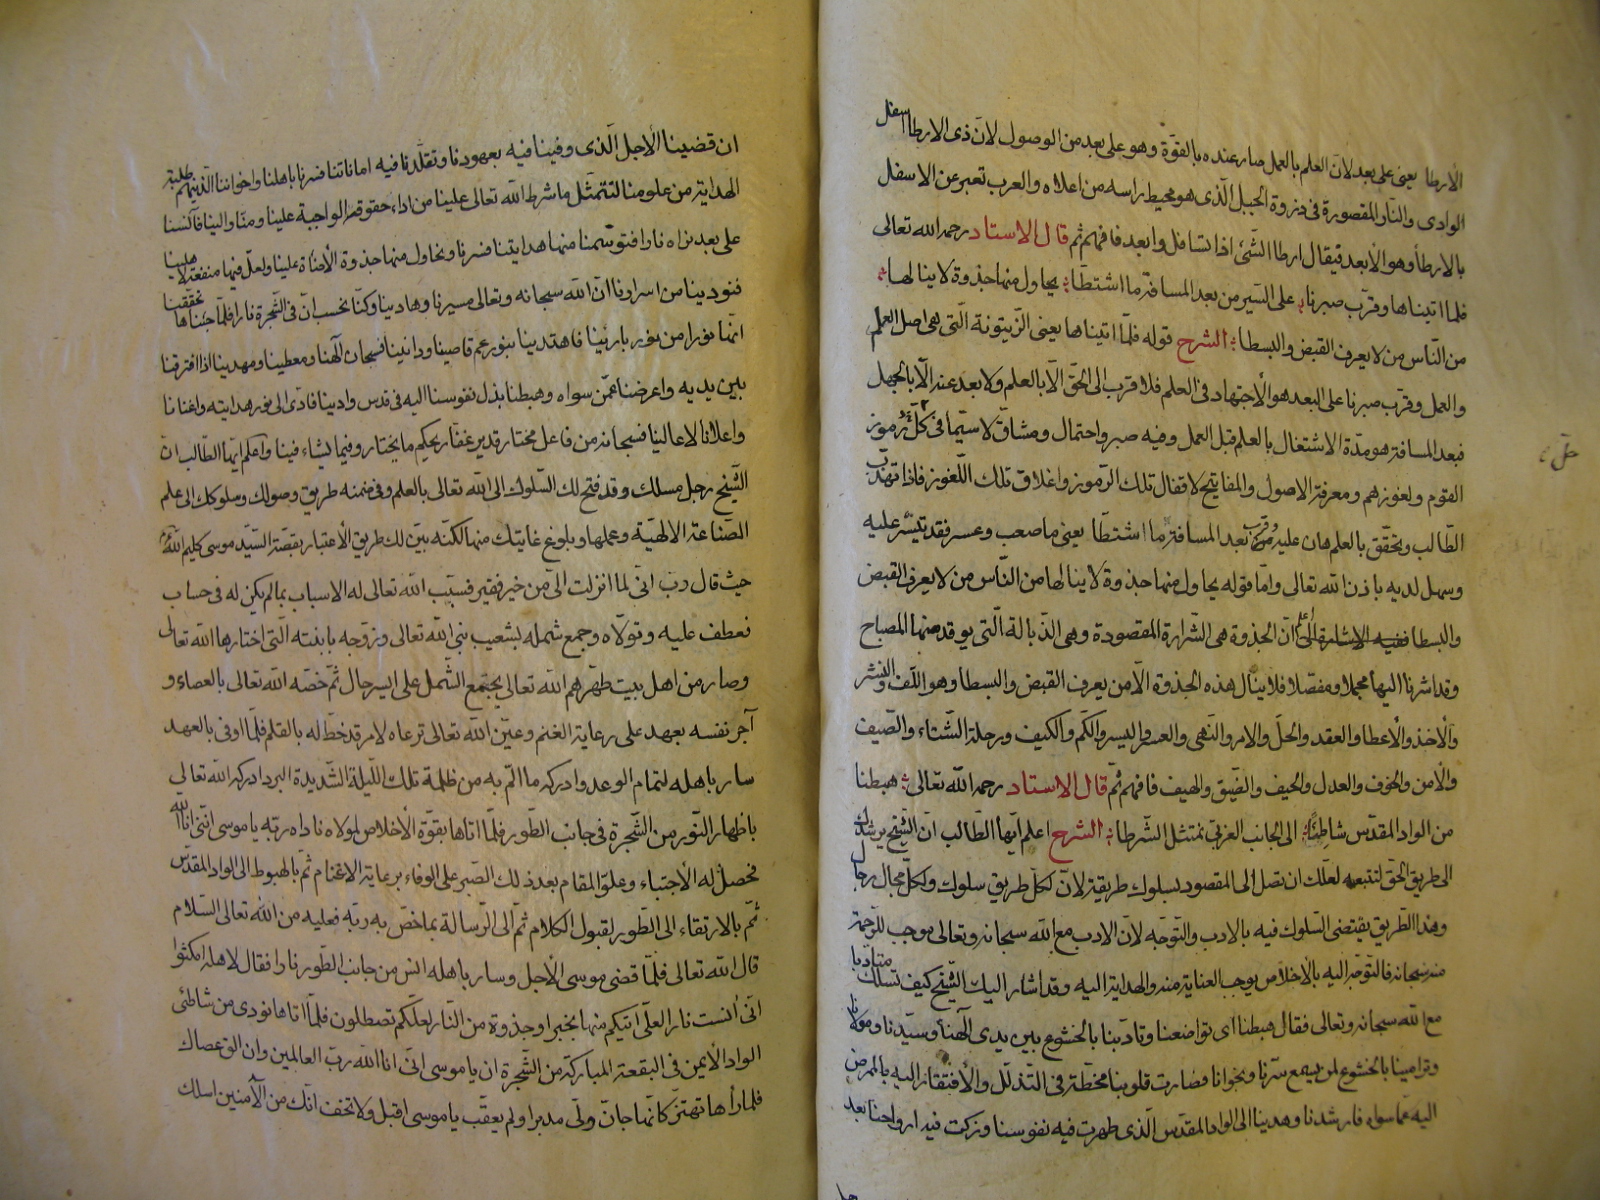 الارطا يعنى على بعد لان العلم بالعمل صار عنده بالقوة وهو على بعد من الوصول لان ذى الارطا اسفل
الوادى والنار المقصورة فى ذروة الجبل الذى هو محيط براسه من اعلاه والعرب تعبر عن الاسفل
بالارطا وهو الابعد فيقال ارطا الشئ اذا تسافل وابعد فافهم ثم قال الاستاد رحمه الله تعالى
فلما اتيناها وقرب صبرنا على السير من بعد المسافة ما اشتطا يحاول منها جذوة لا ينالها
من الناس من لا يعرف القبض والبسطا الشرح قوله فلما اتيناها يعنى الزيتونة التى هى اصل العلم
والعمل وقرب صبرنا على البعد هو الاجتهاد فى العلم فلا قرب الى الحق الا بالعلم ولا بعد عنه الا بالجهل
فبعد المسافة هو مدة الاشتغال بالعلم قبل العمل وفيه صبر واحتمال ومشاق لا سيما فى رموز
القوم ولغوزهم ومعرفة الاصول والمفاتيح لاقفال تلك الرموز واغلاق تلك اللغوز فاذا تهذب
الطالب وتحقق بالعلم هان عليه وقرب بعد المسافة ما اشتطا يعنى ما صعب وعسر فقد تيسر عليه
وسهل لديه باذن الله تعالى واما قوله يحاول منها جذوة لا ينالها من الناس من لا يعرف القبض
والبسطا ففيه الاشارة الى ان الجذوة هى الشرارة المقصودة وهى الذبالة التى يوقد منها المصباح
وقد اشرنا اليها مجملا ومفصلا فلا ينال هذه الجذوة الا من يعرف القبض والبسطا وهو اللف والنشر
والاخذ والاعطا والعقد والحل والامر والنهى والعسر واليسر والكم والكيف ورحلة الشتاء والصيف
والامن والخوف والعدل والحيف والضيق والهيف فافهم ثم قال الاستاد رحمه الله تعالى هبطنا
من الواد المقدس شاطئا الى الجانب الغربى نمتثل الشرطا الشرح اعلم ايها الطالب ان الشيخ يرشدك
الى طريق الحق لتتبعه لعلك ان تصل الى المقصود بسلوك طريقته لان لكل طريق سلوك ولكل مجال رجال
وهذا الطريق يقتضى السلوك فيه بالادب والتوجه لان الادب مع الله سبحانه وتعالى يوجب للرحمة
منه سبحانه فالتوجه اليه بالاخلاص يوجب العناية منه والهداية اليه وقد اشار اليك الشيخ كيف تسلك متادبا
مع الله سبحانه وتعالى فقال هبطنا اى تواضعنا وتادبنا بالخشوع بين يدى الهنا وسيدنا ومولانا
وترامينا بالخشوع لمن يسمع سرنا ونجوانا فصارت قلوبنا منحطة فى التذلل والافتقار اليه بالمرض
اليه عما سواه فارشدنا وهدينا الى الواد المقدس الذى طهرت فيه نفوسنا وزكت فيه ارواحنا بعد
ان قضينا الاجل الذى وفينا فيه بعهودنا وتقلدنا فيه اماناتنا فسرنا باهلنا واخواننا الذين طلبة
الهداية من علومنا لتتمثل ما شرط الله تعالى علينا من اداء حقوقهم الواجبة علينا ومنا والينا فآنسنا
على بعد نراه نارا فتوسمنا منها هدايتنا فسرنا ونحاول منها جذوة الاضاة علينا ولعل فيها منفعة لاهلينا
فنودينا من اسرارنا ان الله سبحانه وتعالى مسيرنا وهادينا وكنا نحسب ان فى الشجرة نارا فلما جئناها تحققنا
انما نورا من نور بارئينا فاهتدينا بنور عم قاصينا ودانينا فسبحان الهنا ومعطينا ومهدينا اذا افترقنا
بين يديه واعرضنا عمن سواه وهبطنا بذل نفوسنا اليه فى قدس وادينا فادى الى نور هدايته واغنانا
واعلانا لاعالينا فسبحانه من فاعل مختار قدير غفار يحكم ما يختار وفيما يشاء فينا واعلم ايها الطالب ان
الشيخ رجل مسلك وقد فتح لك السلوك الى الله تعالى بالعلم وفى ضمنه طريق وصولك وسلوكك الى علم
الصناعة الالهية وعملها وبلوغ غايتك منها لكنه بين لك طريق الاعتبار بقصة السيد موسى كليم الله
حيث قال رب انى لما انزلت الى من خير فقير فسبب الله تعالى له الاسباب بما لم يكن له فى حساب
فعطف عليه وتولاه وجمع شمله بشعيب نبى الله تعالى وزوجه بابنته التى اختارها الله تعالى
وصار من اهل بيت طهرهم الله تعالى يجتمع الشمل على السر حال ثم خصه الله تعالى بالعصاء و
آجر نفسه بعهد على رعاية الغنم وعين الله تعالى ترعاه لامر قد خط له بالقلم فلما اوفى بالعهد
سار باهله لتمام الوعد وادركه ما الم به من ظلمة تلك الليلة الشديدة البرد ادركه الله تعالى
باظهار النور من الشجرة فى جانب الطور فلما اتاها بقوة الاخلاص لمولاه ناداه ربه يا موسى اننى انا الله
فحصل له الاجتباء وعلو المقام بعد ذلك الصبر على الوفاء برعاية الاغنام ثم بالهبوط الى الواد المقدس
ثم بالارتقاء الى الطور لقبول الكلام ثم الى الرسالة بما خص به ربه فعليه من الله تعالى السلام
قال الله تعالى فلما قضى موسى الاجل وسار باهله انس من جانب الطور نارا فقال لاهله امكثوا
انى انست نارا لعلى آتيكم منها بخبر او جذوة من النار لعلكم تصطلون فلما اتاها نودى من شاطئ
الواد الايمن فى البقعة المباركة من الشجرة ان يا موسى انى انا الله رب العالمين وان الق عصاك
فلما رأها تهتز كانها جان ولى مدبرا ولم يعقب يا موسى اقبل ولا تخف انك من الآمنين اسلك